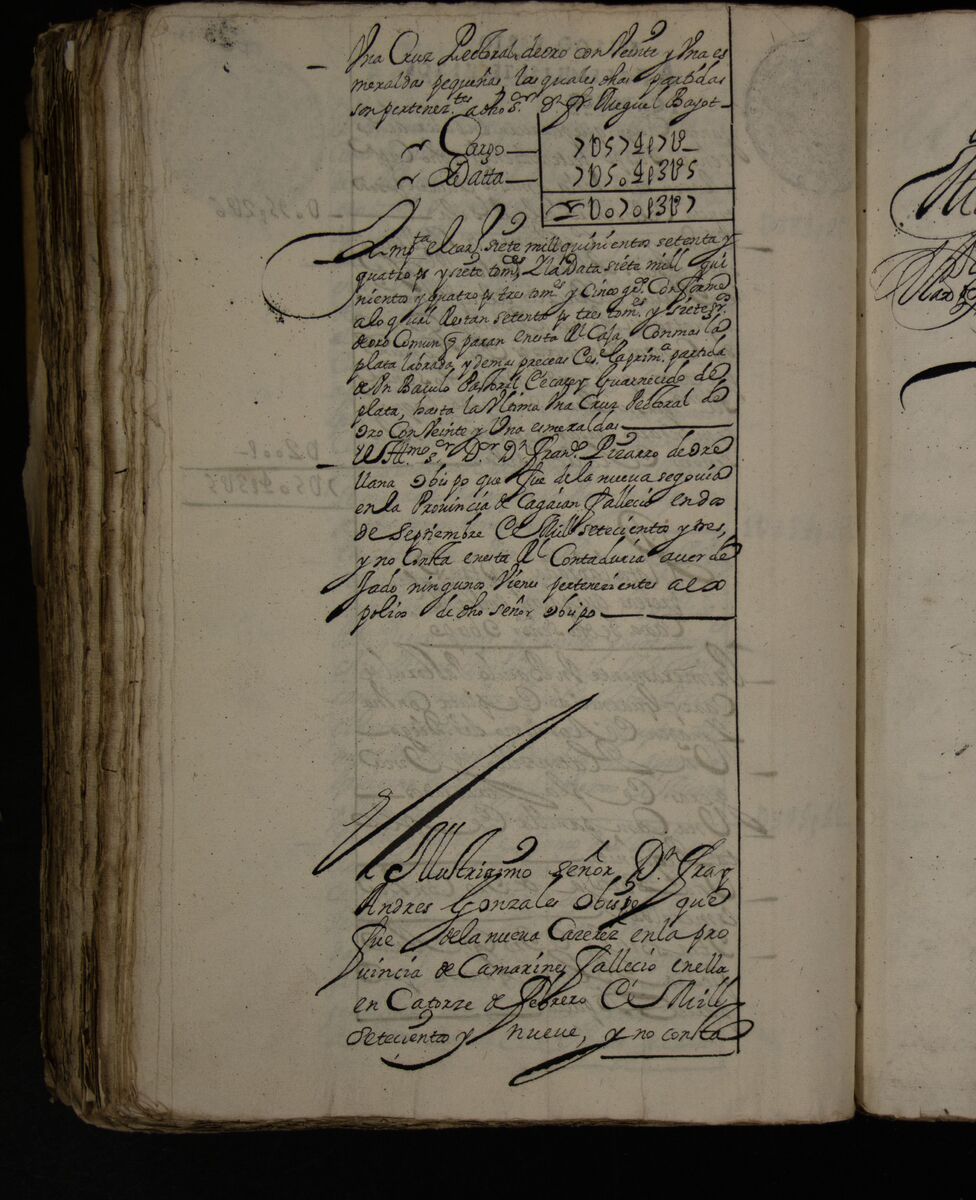 Vna Cruz Pectoral de oro con Veinte y Vna es
meraldas pequeñas, las quales dhas partidas
son pertenez.tes a dho S.or D.n Fr. Miguel Bayot
Cargo
Datta
Ymp.ta el car.o siete mill quinientos setenta y
quatro ps y siete tom.s Y la Data siete mill qui
nientos y quatro ps tres tom.s y Cinco g.s Conforme
a lo qual Restan setenta ps tres tom.s y siete g.s
de oro Comun q paran en esta Rl Caja Con mas la
plata labrada, y demas preceas De la prim.a partida
de Vn Baculo Pastoral De carey Guarnecido de
plata, hasta la Vltima Vna Cruz Pectoral de
Oro Con Veinte y Vna esmeraldas
Yll.mo S.or D.or D.n Fran.co Pizarro de Ore
llana Obispo que fue de la nueva segovia
en la Provincia de Cagaian fallecio en dos
de Septiembre De Mill setecientos y tres,
y no Consta en esta Rl Contaduria auer de
jado ningunos Vienes pertenecientes al es
polio de dho señor Obispo
Yllustrissmo señor D.n Fray
Andres Gonzales Obispo que
fue de la nueva Cazerez en la pro
uincia de Camarines fallecio en ella
en Catorze de Febrero De Mill
setecientos y nueve, y no consta